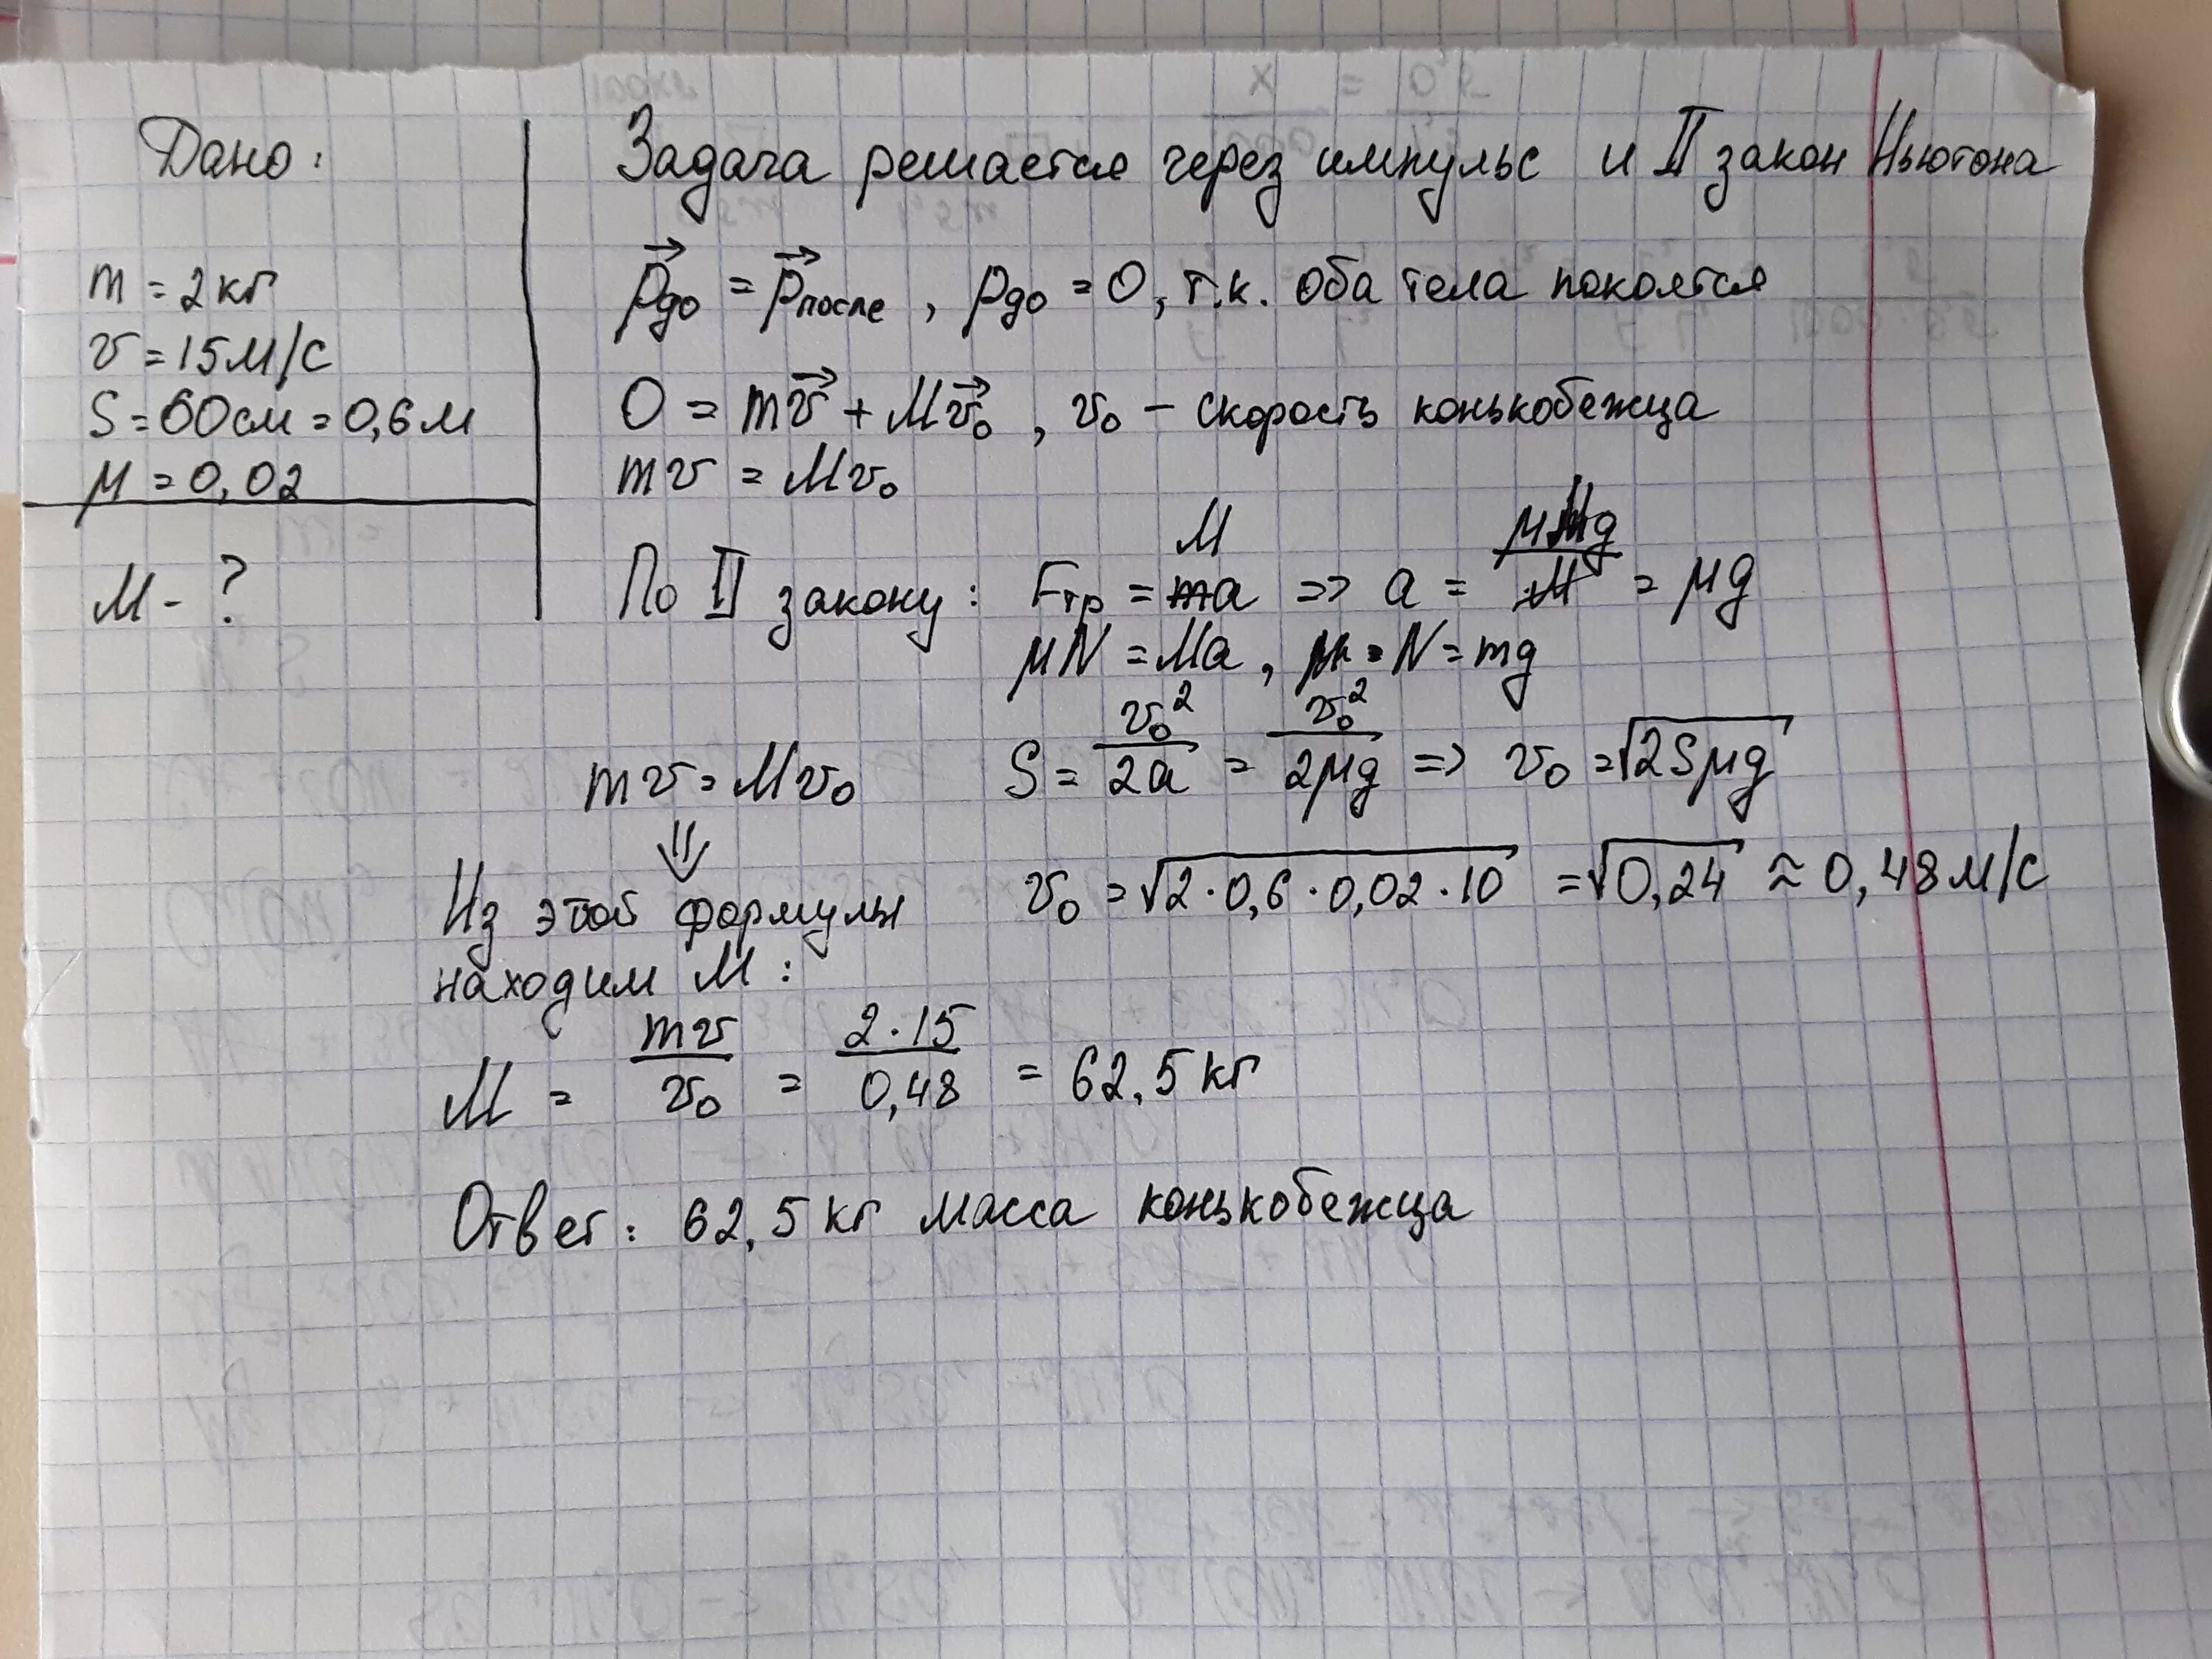 Дано:
m = 2 кг
v = 15 м/с
S = 60 см = 0,6 м
μ = 0,02
M - ?
Задача решается через импульс и II закон Ньютона
p⃗до = p⃗после , pдо = 0, т.к. оба тела покоятся
0 = mv⃗ + Mv⃗₀ , v₀ – скорость конькобежца
mv = Mv₀
По II закону: Fтр = Ma => a = μMg/M = μg
μN = Ma , N = mg
S = v₀²/2a = v₀²/2μg => v₀ = √2Sμg
v₀ = √2·0,6·0,02·10 = √0,24 ≈ 0,48 м/с
mv = Mv₀
⇓
Из этой формулы
находим M:
M = mv/v₀ = 2·15/0,48 = 62,5 кг
Ответ: 62,5 кг масса конькобежца